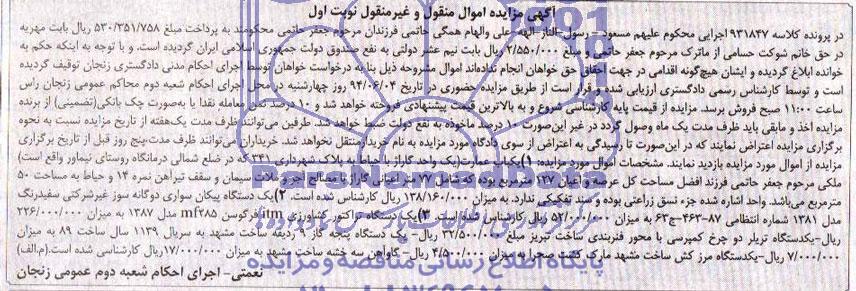 آگهی مزایده اموال منقول و غیرمنقول نوبت اول
در پرونده کلاسه ۹۳۱۸۴۷ اجرایی محکوم علیهم مسعود - رسول- الناز- الهه- علی والهام همگی حاتمی فرزندان مرحوم جعفر حاتمی محکومند به پرداخت مبلغ ۵۳۰/۳۵۱/۷۵۸ ریال بابت مهریه
در حق خانم شوکت حسامی از ماترک مرحوم جعفر حاتمی و مبلغ ۲/۵۵۰/۰۰۰ ریال بابت نیم عشر دولتی به نفع صندوق دولت جمهوری اسلامی ایران گردیده است. و با توجه به اینکه حکم به
خوانده ابلاغ گردیده و ایشان هیچ‌گونه اقدامی در جهت احقاق حق خواهان انجام نداده‌اند اموال مشروحه ذیل بنا به درخواست خواهان توسط اجرای احکام مدنی دادگستری زنجان توقیف گردیده
است و توسط کارشناس رسمی دادگستری ارزیابی شده و قرار است از طریق مزایده حضوری در تاریخ ۹۴/۰۶/۰۴ روز چهارشنبه در محل اجرای احکام شعبه دوم محاکم عمومی زنجان راس
ساعت ۱۱:۰۰ صبح فروش برسد. مزایده از قیمت پایه کارشناسی شروع و به بالاترین قیمت پیشنهادی فروخته خواهد شد و ۱۰ درصد ثمن معامله نقدا یا به‌صورت چک بانکی(تضمینی) از برنده
مزایده اخذ و مابقی باید ظرف مدت یک ماه وصول گردد در غیر این‌صورت ۱۰ درصد ماخوذه به نفع دولت ضبط خواهد شد. طرفین می‌توانند ظرف مدت یک‌هفته از تاریخ مزایده نسبت به نحوه
برگزاری مزایده اعتراض نمایند که در این‌صورت تا رسیدگی به اعتراض از سوی دادگاه مورد مزایده به نام خریدار منتقل نخواهد شد. خریداران می‌توانند ظرف مدت پنج روز قبل از تاریخ برگزاری
مزایده از اموال مورد مزایده بازدید نمایند. مشخصات اموال مورد مزایده: ۱)یکباب عمارت(یک واحد گاراژ با حیاط به پلاک شهرداری ۳۴۱ که در ضلع شمالی درمانگاه روستای نیماور واقع است)
ملکی مرحوم جعفر حاتمی فرزند افضل مساحت کل عرصه و اعیان ۱۲۷ مترمربع بوده که شامل ۷۷ متر اعیانی گاراژ با مصالح آجر و ملات سیمان و سقف تیرآهن نمره ۱۴ و حیاط به مساحت ۵۰
مترمربع می‌باشد. واحد اشاره شده جزء نسق زراعتی بوده و سند تفکیکی ندارد. به میزان ۱۳۸/۱۶۰/۰۰۰ ریال کارشناس شده است. ۲)یک دستگاه پیکان سواری دوگانه سوز غیرشرکتی سفیدرنگ
مدل ۱۳۸۱ شماره انتظامی ۸۷-۴۶۳ج۶۳ به میزان ۵۲/۰۰۰/۰۰۰ ریال کارشناس شده است. ۳)یک دستگاه تراکتور کشاورزی itm فرگوسن mf۲۸۵ مدل ۱۳۸۷ به میزان ۲۲۶/۰۰۰/۰۰۰
ریال-یکدستگاه تریلر دو چرخ کمپرسی با محور فنربندی ساخت تبریز مبلغ ۳۲/۵۰۰/۰۰۰ ریال- یک دستگاه پنجه گاز ۹ ردیفه ساخت مشهد به سریال ۱۱۳۹ سال ساخت ۸۹ به میزان
۷/۰۰۰/۰۰۰ ریال-یکدستگاه مرز کش ساخت مشهد مارک کشت صحرا به میزان ۴/۵۰۰/۰۰۰ ریال- گاوآهن سه خشه ساخت مشهد به میزان ۱۷/۰۰۰/۰۰۰ریال کارشناسی شده است.(م.الف)
نعمتی- اجرای احکام شعبه دوم عمومی زنجان
ParsNamadData
پایگاه اطلاع رسانی مناقصه و مزایده